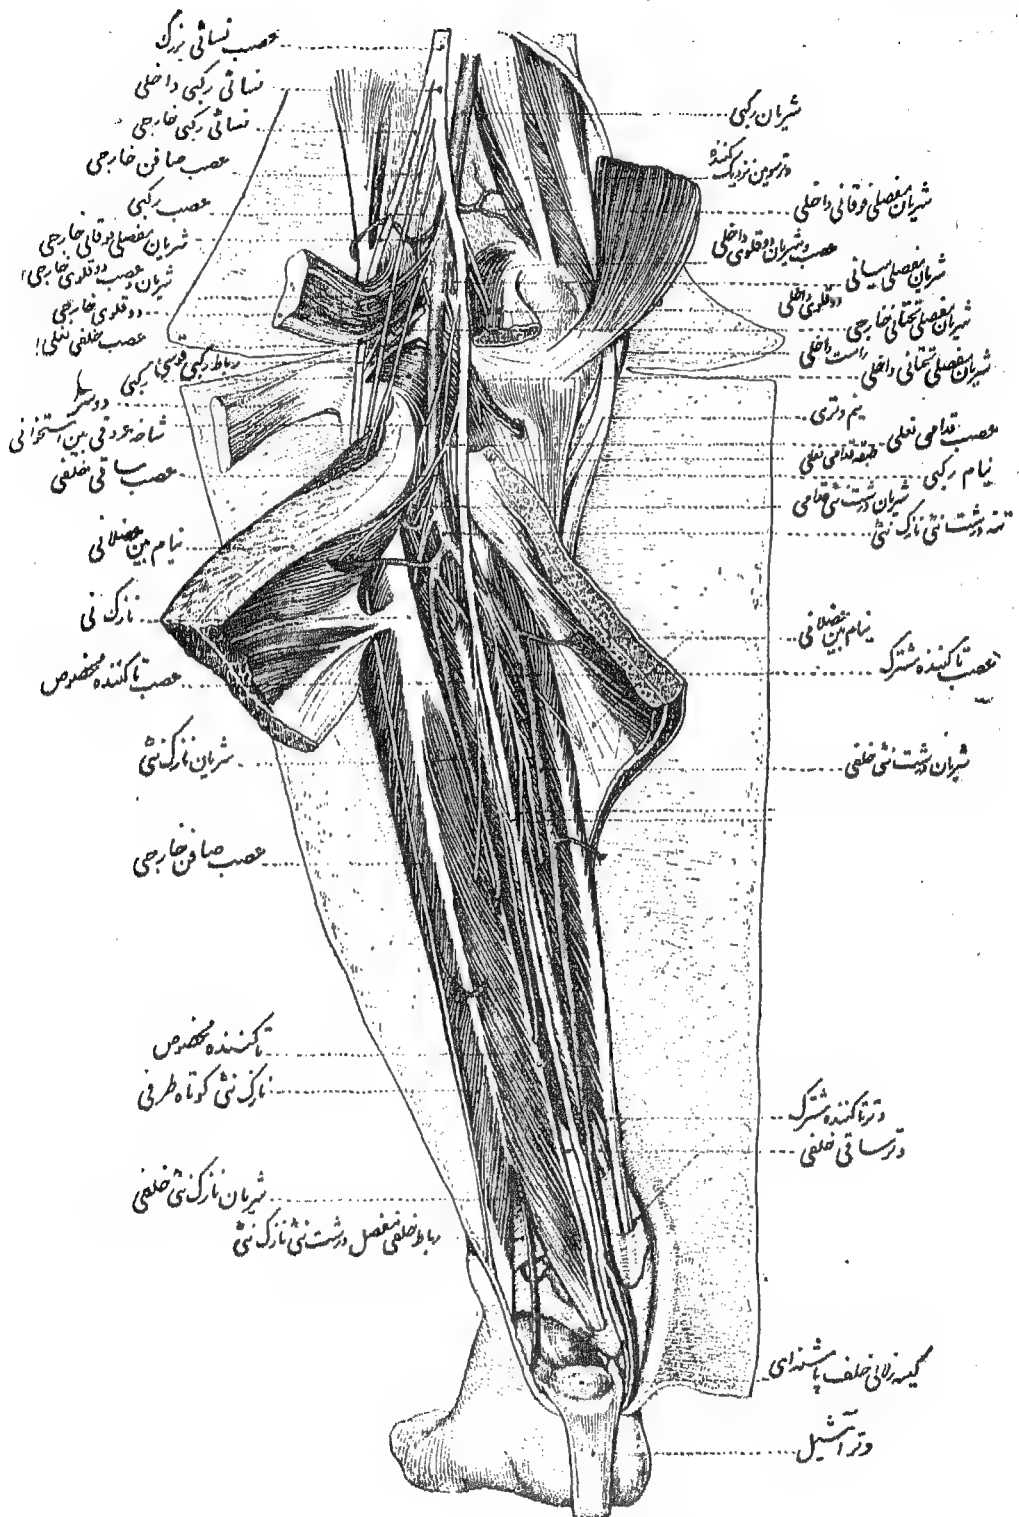 عصب نسائی بزرگ
نسائی رکبی داخلی
نسائی رکبی خارجی
عصب صافن خارجی
عصب رکبی
شریان مفصلی فوقانی خارجی
شریان و عصب دوقلوی خارجی
دوقلوی خارجی
عصب خلفی نعلی
رباط رکبی قوسی رکبی
دوسر
شاخه عروقی بین استخوانی
عصب ساقی خلفی
نیام بین عضلانی
نازک نی
عصب تاکننده مخصوص
شریان نازک نئی
عصب صافن خارجی
تاکننده مخصوص
نازک نئی کوتاه طرفی
شریان نازک نئی خلفی
رباط خلفی مفصل درشت نئی نازک نئی
شریان رکبی
وتر سومین نزدیک کننده
شریان مفصلی فوقانی داخلی
عصب و شریان دوقلوی داخلی
شریان مفصلی میانی
دوقلوی داخلی
شریان مفصلی تحتانی خارجی
راست داخلی
شریان مفصلی تحتانی داخلی
نیم وتری
عصب قدامی نعلی
طبقه قدامی نعلی
نیام رکبی
شریان درشت نئی قدامی
تنه درشت نئی نازک نئی
نیام بین عضلانی
عصب تاکننده مشترک
شریان درشت نئی خلفی
وتر تاکننده مشترک
وتر ساقی خلفی
کیسه زلالی خلف پاشنه‌ای
وتر آشیل